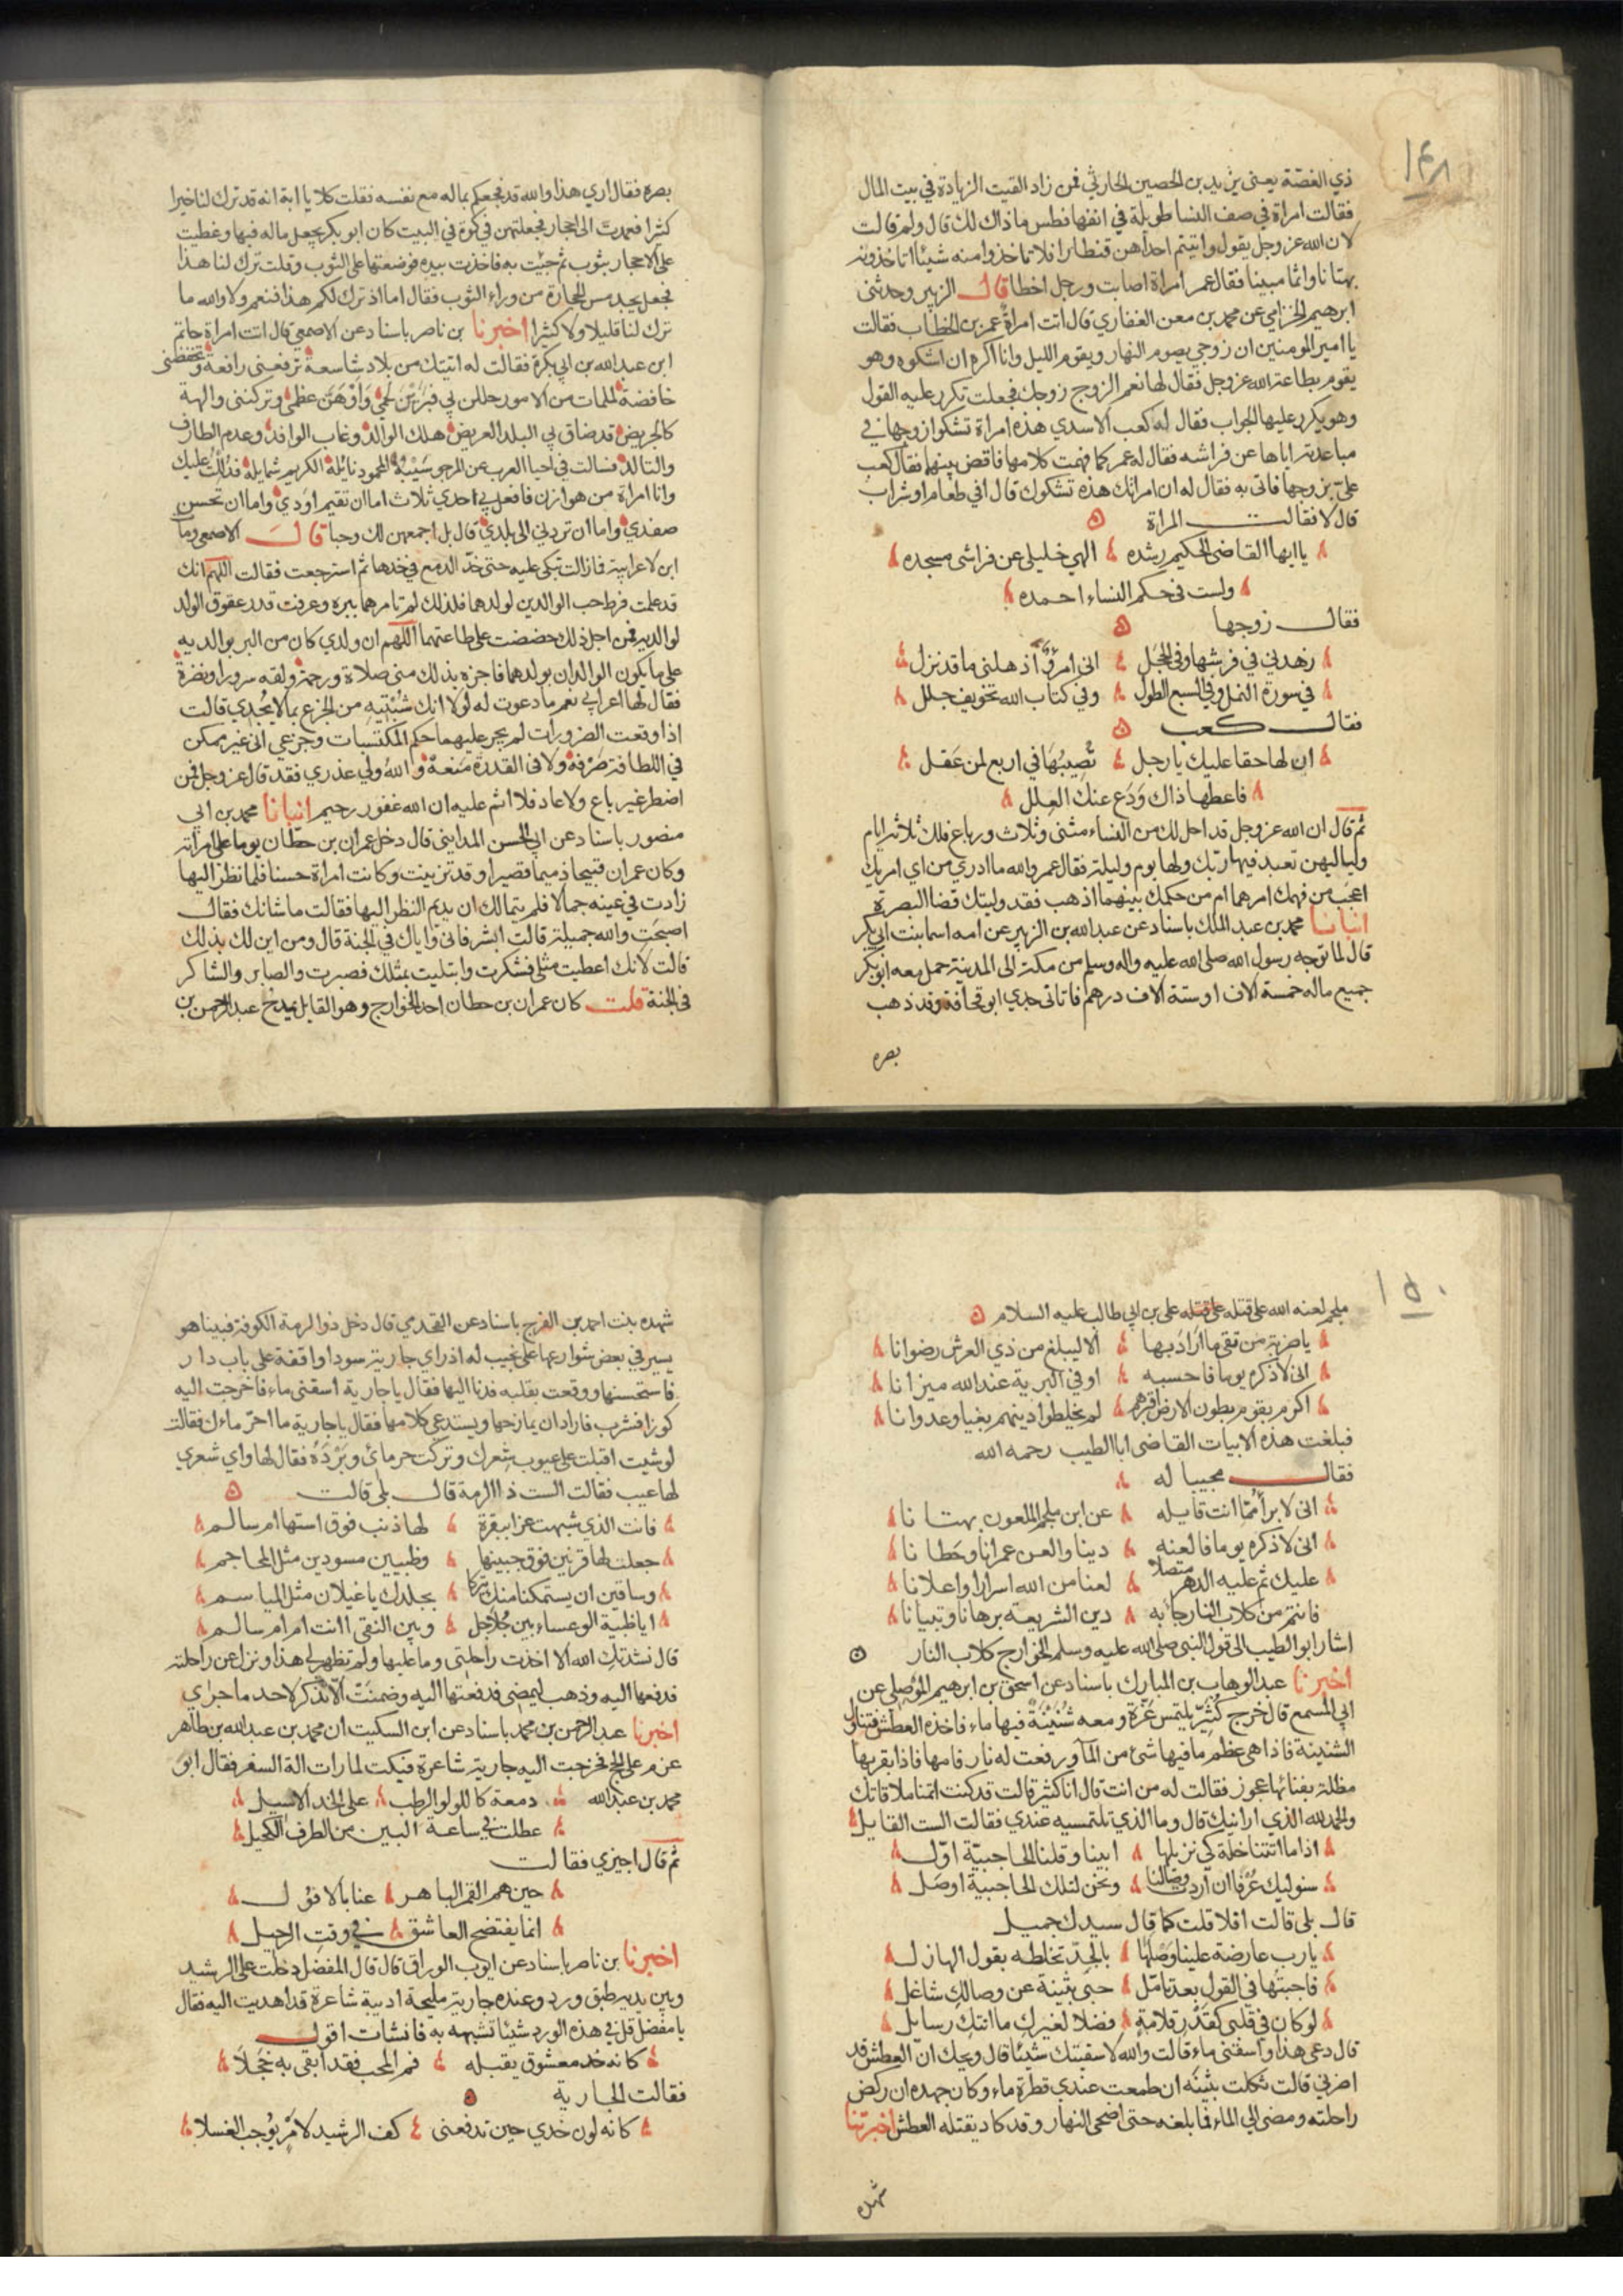 ١٤٨
ذي الغصّة يعنى يزيد بن الحصين الحارثي فمن زاد القيت الزيادة في بيت المال
فقالت امراة في صف النسا طويلة في انفها فطس ماذاك لك قال ولم قالت
لان الله عز وجل يقول واتيتم احداهن قنطارا فلا تاخذوا منه شيئا اتاخذونه
بهتانا واثما مبينا فقال عمر امراة اصابت ورجل اخطا قال الزبير وحدثنى
ابرهيم الحزامي عن محمد بن معن الغفاري قال اتت امراة عمر بن الخطاب فقالت
يا امير المومنين ان زوجي يصوم النهار ويقوم الليل وانا اكره ان اشكوه وهو
يقوم بطاعة الله عز وجل فقال لها نعم الزوج زوجك فجعلت تكرر عليه القول
وهو يكرر عليها الجواب فقال له كعب الاسدي هذه امراة تشكوا زوجها في
مباعدته اياها عن فراشه فقال له عمر كما فهمت كلامها فاقض بينهما فقال كعب
علىّ بزوجها فاتى به فقال له ان امراتك هذه تشكوك قال افي طعام او شراب
قال لا فقالت المراة
يا ايها القاضى الحكيم رشده الهي خليلى عن فراشى مسجده
ولست فى حكم النساء احمده
فقال زوجها
زهدني في فرشها وفى الحجل انى امرؤ اذهلنى ما قد نزل
في سورة النمل وفى السبع الطول وفى كتاب الله تخويف جلل
فقال كعب
ان لها حقا عليك يا رجل تُصِيبُهَا في اربع لمن عقل
فاعطها ذاك وَدَع عنك العلل
ثم قال ان الله عز وجل قد احل لك من النساء مثنى وثلاث ورباع فلك ثلاثة ايام
ولياليهن تعبد فيها ربك ولها يوم وليلة فقال عمر والله ما ادري من اي امريك
اعجب من فهمك امرهما ام من حكمك بينهما اذهب فقد وليتك قضا البصرة
انبانا محمد بن عبد الملك باسناد عن عبد الله بن الزبير عن امه اسما بنت ابي بكر
قال لما توجه رسول الله صلى الله عليه واله وسلم من مكة الى المدينة حمل معه ابو بكر
جميع ماله خمسة الاف او ستة الاف درهم فاتانى جدي ابو قحافة وقد ذهب
بصره
بصره فقال ارى هذا والله قد فجعكم بماله مع نفسه فقلت كلا يا ابة انه قد ترك لنا خيرا
كثيرا فعمدت الى احجار فجعلتهن في كوة في البيت كان ابو بكر يجعل ماله فيها وغطيت
على الاحجار بثوب ثم جيت به فاخذت بيده فوضعتها على الثوب وقلت ترك لنا هذا
فجعل يجد مس الحجارة من وراء الثوب فقال اما اذ ترك لكم هذا فنعم ولا والله ما
ترك لنا قليلا ولا كثيرا اخبرنا بن ناصر باسناد عن الاصمعى قال اتت امراة حاتم
ابن عبد الله بن ابي بكرة فقالت له اتيتك من بلاد شاسعة ترفعنى رافعة وتخفضنى
خافضة لملمات من الامور حللن بي فبَرَيْنَ لحمي وَاَوْهَنَّ عظمي وتركننى والهة
كالجريض قد ضاق بي البلد العريض هلك الوالد وغاب الوافد وعدم الطارف
والتالد فسالت في احيا العرب عن المرجو سَيْبُهُ المحمود نائله الكريم شمايله فدُللْتُ عليك
وانا امراة من هوازن فافعل بي احدي ثلاث اما ان تقيم اودي واما ان تحسن
صفدي واما ان تردني الى بلدي قال بل اجمعهن لك وحبا قال الاصمعى ومات
ابن لاعرابية فما زالت تبكى عليه حتى خدّ الدمع في خدها ثم استرجعت فقالت اللهم انك
قد علمت فرط حب الوالدين لولدهما فلذلك لم تامرهما ببره وعرفت قدر عقوق الولد
لوالديه فمن اجل ذلك حضضت على طاعتهما اللهم ان ولدي كان من البر بوالديه
على ما يكون الوالدان بولدهما فاجزه بذلك منى صلاة ورحمة ولقه سرورا ونضرة
فقال لها اعرابي نعم ما دعوت له لولا انك شُبْتِيهِ من الجزع بما لا يُجدي قالت
اذا وقعت الضرورات لم يجر عليهما حكم المكتسبات وجزعي انى غير ممكن
في اللطافة صَرْفهُ ولا فى القدرة مَنعهُ والله ولي عذري فقد قال عز وجل فمن
اضطر غير باغ ولا عاد فلا اثم عليه ان الله غفور رحيم انبانا محمد بن ابي
منصور باسناد عن ابي الحسن المدايني قال دخل عمران بن حطان يوما على امراته
وكان عمران قبيحا ذميما قصيرا وقد تزينت وكانت امراة حسنا فلما نظر اليها
زادت في عينه جمالا فلم يتمالك ان يديم النظر اليها فقالت ما شانك فقال
اصبحتِ والله جميلة قالت ابشر فانى واياك في الجنة قال ومن اين لك بذلك
قالت لانك اعطيت مثلى فشكرت وابتليت بمثلك فصبرت والصابر والشاكر
فى الجنة قلت كان عمران بن حطان احد الخوارج وهو القايل يمدح عبد الرحمن بن
١٥٠
ملجم لعنه الله على قتله على قتله على بن ابي طالب عليه السلام
يا ضربة من تقى ما اراد بها الا ليبلغ من ذي العرش رضوانا
انى لاذكره يوما فاحسبه اوفي البرية عند الله ميزانا
اكرم بقوم بطون الارض اقبرهم لم يخلطوا دينهم بغيا وعدوانا
فبلغت هذه الابيات القاضى ابا الطيب رحمه الله
فقال مجيبا له
انى لابرأ مما انت قايله عن ابن ملجم الملعون بهتانا
انى لاذكره يوما فالعنه دينا والعن عمرانا وحطانا
عليك ثم عليه الدهر متصلا لعنا من الله اسرارا واعلانا
فانتم من كلاب النار جا به دين الشريعة برهانا وتبيانا
اشار ابو الطيب الى قول النبى صلى الله عليه وسلم الخوارج كلاب النار
اخبرنا عبد الوهاب بن المبارك باسناد عن اسحق بن ابرهيم الموصلى عن
ابي المسمع قال خرج كُثَيّر يلتمس عَزّة ومعه شُنَيْنَةٌ فيها ماء فاخذه العطش فتناول
الشنينة فاذا هى عظم ما فيها شئ من المآ ورفعت له نار فامها فاذا بقربها
مظلة بفنائها عجوز فقالت له من انت قال انا كثير قالت قد كنت اتمنا ملاقاتك
والحمد لله الذي ارانيك قال وما الذي تلتمسيه عندي فقالت الست القايل
اذا ما اتتنا خلة كى نزيلها ابينا وقلنا الحاجبيّة اوّل
سنوليك عُرْفا ان اردت وصالنا ونحن لتلك الحاجبية اوصَل
قال بلى قالت افلا قلت كما قال سيدك جميل
يارب عارضة علينا وَصْلهَا بالجدّ تخلطه بقول الهازل
فاجبتها فى القول بعد تامّل حبى بثينة عن وصالكِ شاغل
لو كان فى قلبى كقَدْرِ قلامة فضلا لغيركِ ما اتتكِ رسايل
قال دعى هذا واسقنى ماء قالت والله لا سقيتك شيئا قال ويحك ان العطش قد
اضرني قالت ثكلت بثينه ان طمعت عندي قطرة ماء وكان جهده ان ركض
راحلته ومضى الى الماء فما بلغه حتى اضحى النهار وقد كاد يقتله العطش اخبرتنا
شهده
شهده بنت احمد بن الفرج باسناد عن القحذي قال دخل ذو الرمة الكوفة فبينا هو
يسير في بعض شوارعها على نجيب له اذ راي جارية سودا واقفة على باب دار
فاستحسنها ووقعت بقلبه فدنا اليها فقال يا جارية اسقنى ماء فاخرجت اليه
كوزا فشرب فاراد ان يمازحها ويستدعى كلامها فقال يا جارية ما احرّ ماءك فقالت
لو شيت اقبلت على عيوب شعرك وتركت حر مائى وبَرْدَهُ فقال لها واي شعري
لها عيب فقالت الست ذا الرمة قال بلى قالت
فانت الذي شبهت عنزا بقفرة لها ذنب فوق استها ام سالم
جعلت لها قرنين فوق جبينها وظبيين مسودين مثل المحاجم
وساقين ان يستمكنا منك تتركا بجلدك يا غيلان مثل المياسم
ايا ظبية الوعساء بين جُلاجل وبين النقى اانت ام ام سالم
قال نشدتك الله الا اخذت راحلتى وما عليها ولم تظهرى هذا ونزل عن راحلته
فدفعها اليه وذهب ليمضى فدفعتها اليه وضمنَتْ اَلّا تذكر لاحد ما جراي
اخبرنا عبد الرحمن بن محمد باسناد عن ابن السكيت ان محمد بن عبد الله بن طاهر
عزم على الحج فخرجت اليه جارية شاعرة فبكت لما رات الة السفر فقال ابو
محمد بن عبد الله دمعة كاللولو الرطب على الخد الاسيل
عطلت فى ساعة البين من الطرف الكحيل
ثم قال اجيزي فقالت
حين هم القمر الباهر عنا بالافول
انما يفتضح العاشق في وقت الرحيل
اخبرنا بن ناصر باسناد عن ايوب الوراق قال قال المفضل دخلت على الرشيد
وبين يديه طبق ورد وعنده جارية مليحة اديبة شاعرة قد اهديت اليه فقال
يا مفضل قل في هذه الورد شيئا تشبهه به فانشات اقول
كانه خد معشوق يقبله فم المحب فقد ابقى به خجَلاَ
فقالت الجارية
كانه لون خدي حين تدفعنى كف الرشيد لامْرٍ يُوجب الغسلا